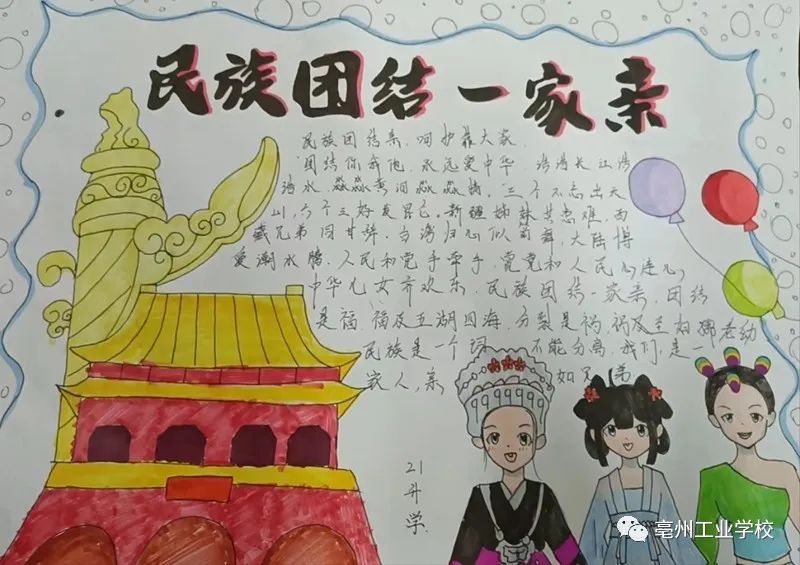 民族团结一家亲
民族团结亲，呵护靠大家，
团结你我他，永远爱中华 滔滔长江滔
滔水，淼淼黄河淼淼情，三个不忘出天
山，今个三好友 ，新疆姊妹共患难，西
藏兄弟同甘醇，台湾归心似箭舞，大陆博
爱潮水腾，人民和党手牵手，党党和人民心连心
中华儿女齐欢乐，民族团结一家亲，团结
是福，福及五湖四海，分裂是祸，祸及至妇孺老幼
民族是一个词 不能分离，我们是一
家人，亲 如兄弟
21
升
学
亳州工业学校